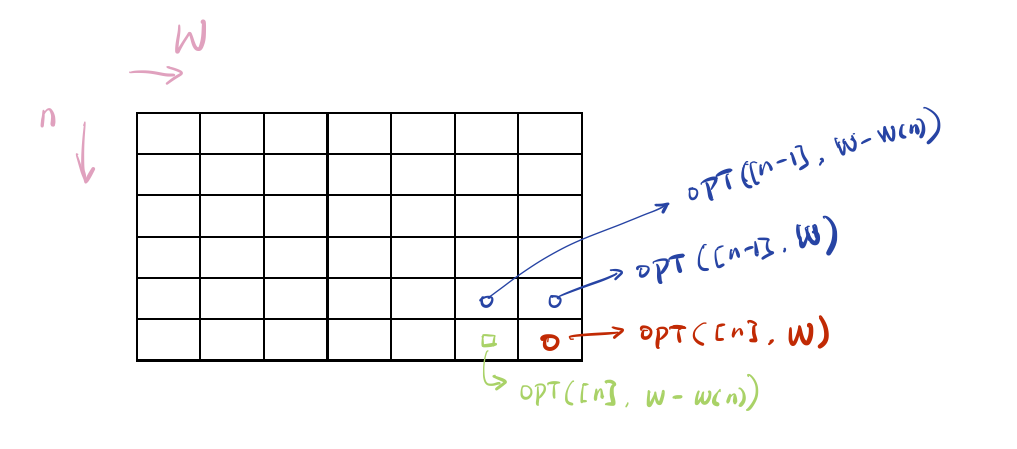 W
n
OPT([n-1], W-w(n))
OPT([n-1], W)
OPT([n], W)
OPT([n], W-w(n))